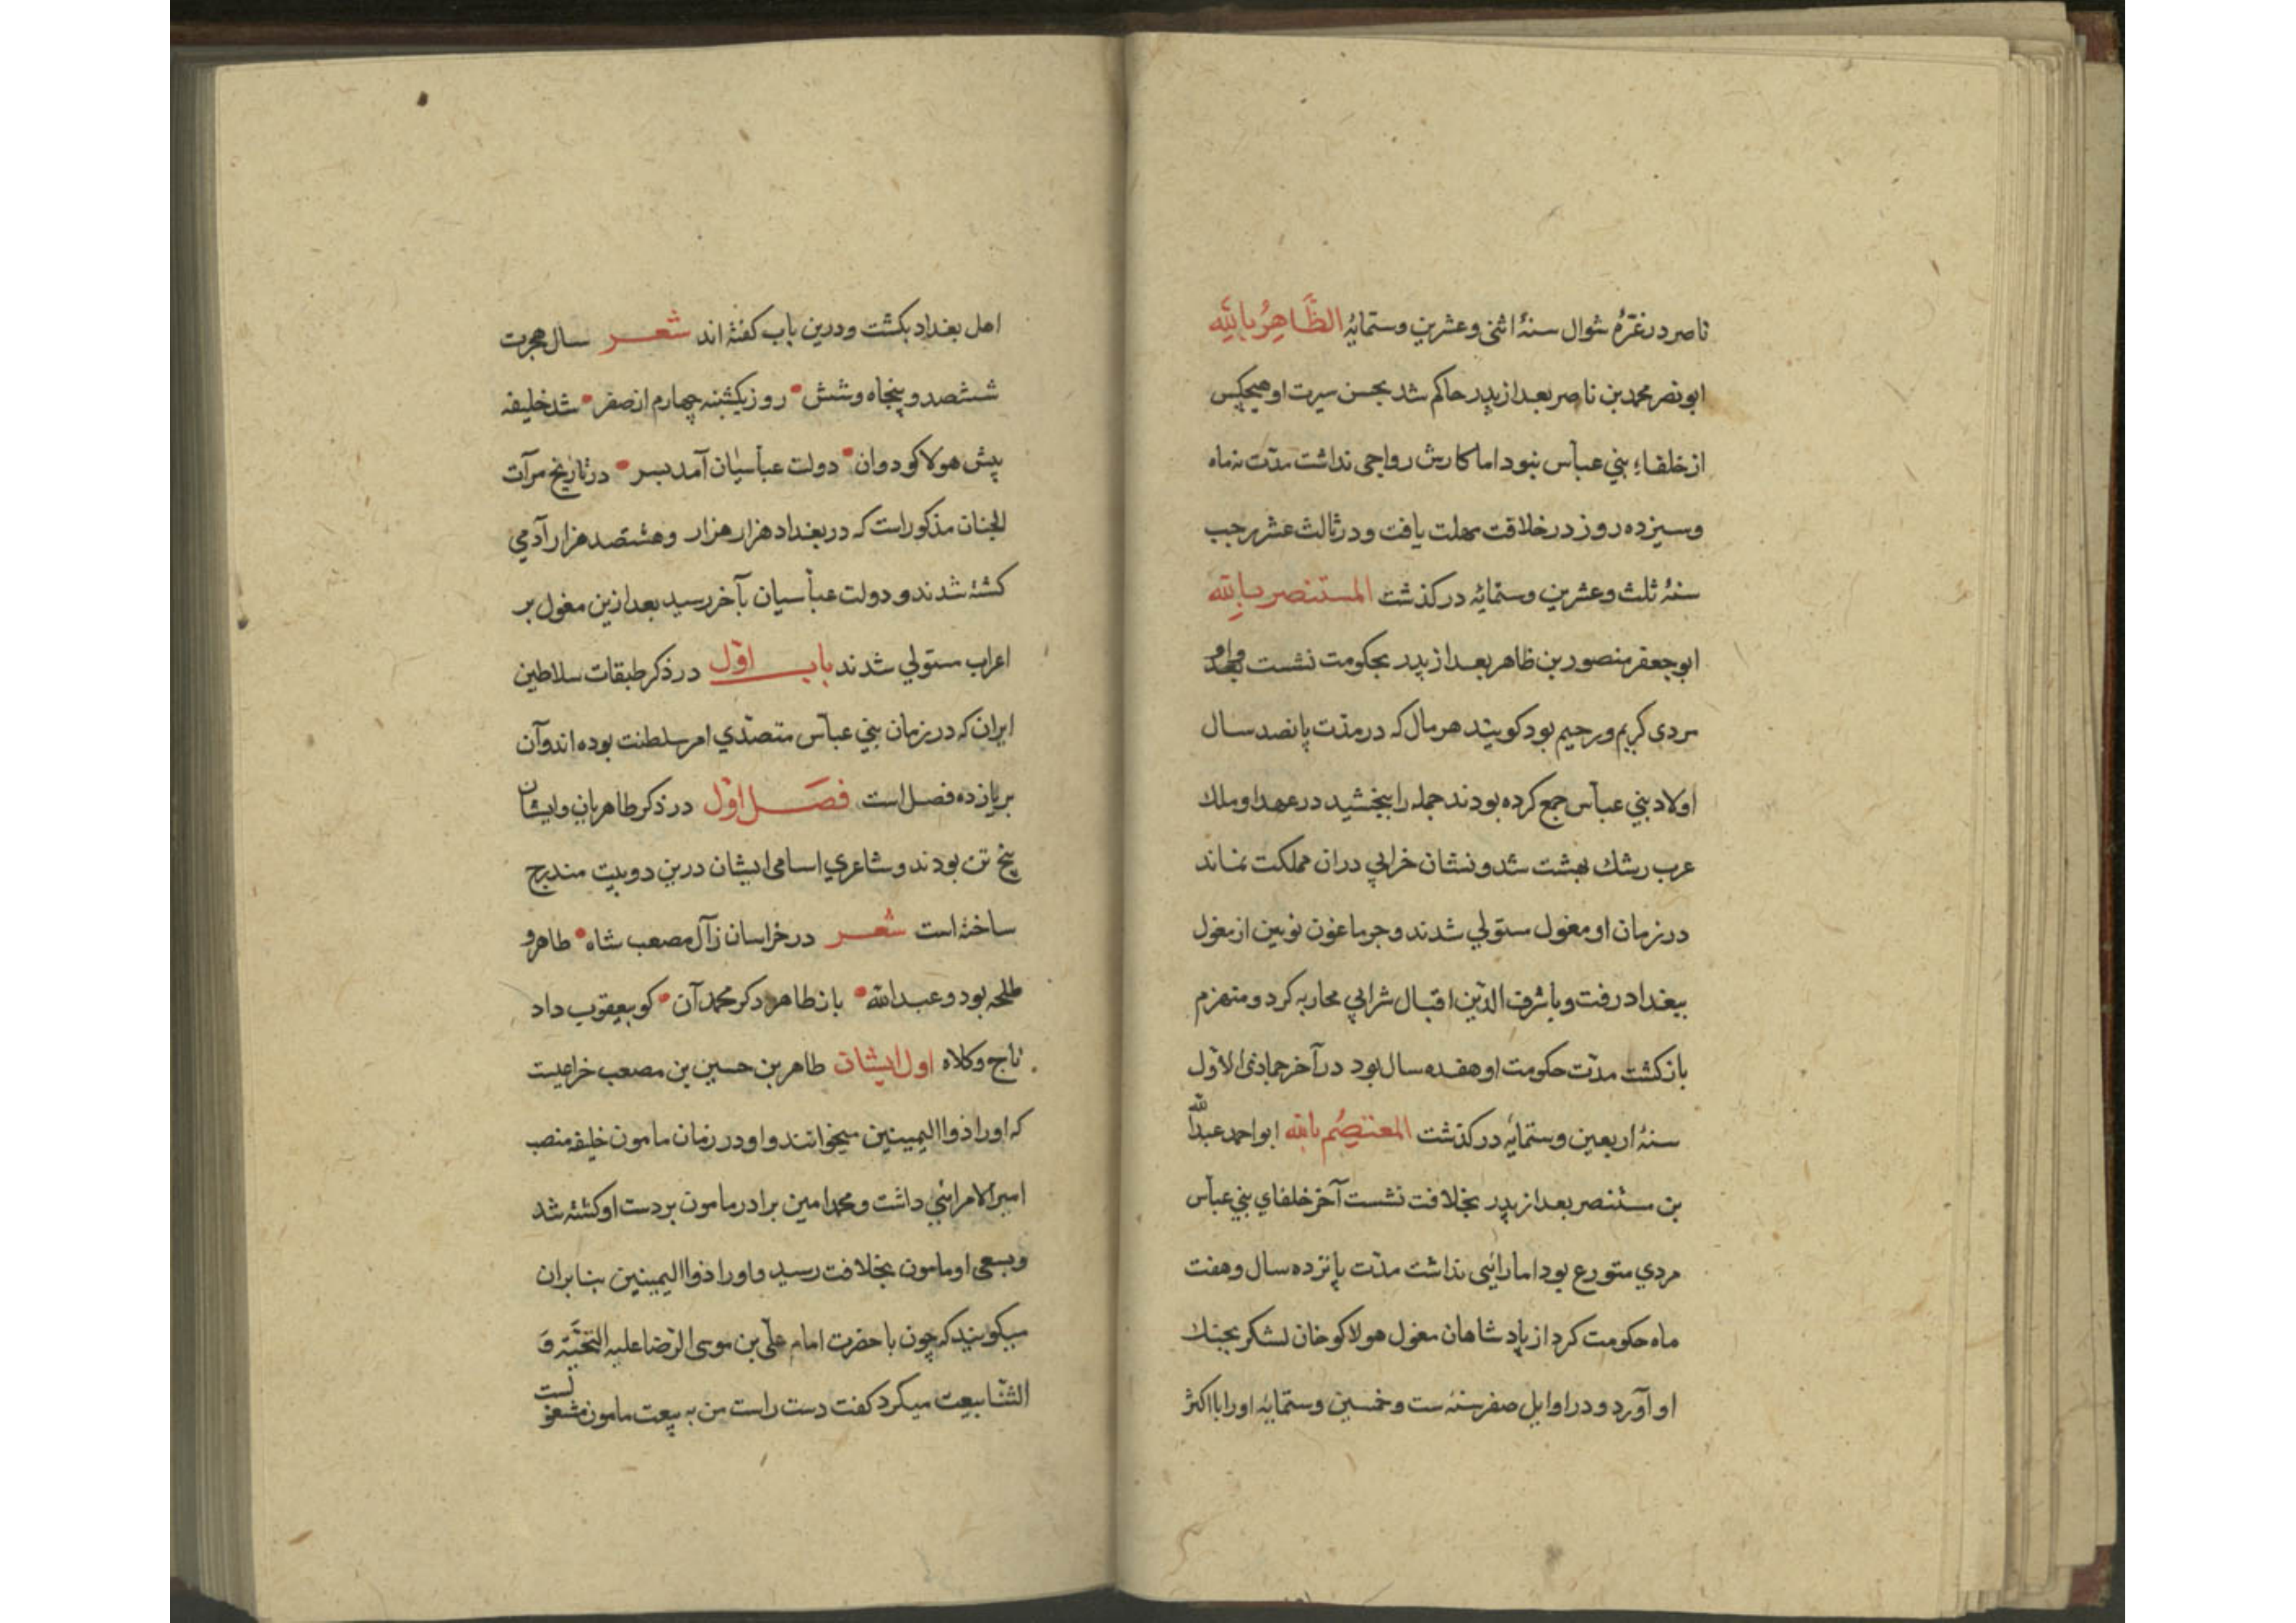 ناصر در غرّهٔ شوال سنهٔ اثنی وعشرین وستمایهٔ الظَّاهِرُ بِاللّٰه
ابونصر محمد بن ناصر بعد از پدر حاکم شد بحسن سیرت او هیچکس
از خلفاء بنی عباس نبود اما کارش رواجی نداشت مدّت نه ماه
وسیزده روز در خلافت مهلت یافت ودر ثالث عشر رجب
سنهٔ ثلث وعشرین وستمایه در کذشت المستنصر بالله
ابوجعفر منصور بن ظاهر بعد از پدر بحکومت نشست واو
مردی کریم ورحیم بود کویند هر مال که در مدّت پانصد سال
اولاد بنی عباس جمع کرده بودند جمله را ببخشید در عهد او ملك
عرب رشك بهشت شد ونشان خرابی دران مملکت نماند
در زمان او مغول مستولی شدند وجرماغون نوبین از مغول
ببغداد رفت وبا شرف الدّین اقبال شرابی محاربه کرد ومنهزم
بازکشت مدّت حکومت او هفده سال بود در آخر جمادی الاوّل
سنهٔ اربعین وستمایه در کذشت المعتصِم بالله ابواحمد عبدالله
بن مستنصر بعد از پدر بخلافت نشست آخر خلفای بنی عباس
مردی متورع بود اما رائیی نداشت مدّت پانزده سال وهفت
ماه حکومت کرد از پادشاهان مغول هولاکو خان لشکر بجنك
او آورد ودر اوایل صفر سنه ست وخمسین وستمایه اورا با اکثر
اهل بغداد بکشت ودرین باب کفته اند شعر سال هجرت
ششصد وپنجاه وشش روز یکشنبه چهارم از صفر شد خلیفه
پیش هولاکو دوان دولت عباسیان آمد بسر در تاریخ مرآت
الجنان مذکور است که در بغداد هزار هزار وهشتصد هزار آدمی
کشته شدند ودولت عباسیان بآخر رسید بعد ازین مغول بر
اعراب مستولی شدند باب اوّل در ذکر طبقات سلاطین
ایران که در زمان بنی عباس متصدّی امر سلطنت بوده اند وآن
بر یازده فصل است فصل اوّل در ذکر طاهریان وایشان
پنج تن بودند وشاعری اسامی ایشان درین دو بیت مندرج
ساخته است شعر در خراسان زآل مصعب شاه طاهر و
طلحه بود وعبدالله باز طاهر دکر محمد آن کو بیعقوب داد
تاج وکلاه اول ایشان طاهر بن حسین بن مصعب خزاعیست
که اورا ذوا الیمینین میخوانند واو در زمان مامون خلیفه منصب
امیرالامرائی داشت ومحمد امین برادر مامون بر دست او کشته شد
وبسعی او مامون بخلافت رسید واورا ذوا الیمینین بنا بران
میکویند که چون با حضرت امام علی بن موسی الرّضا علیه التحیّة وَ
الثنا بیعت میکرد کفت دست راست من به بیعت مامون مشغولست